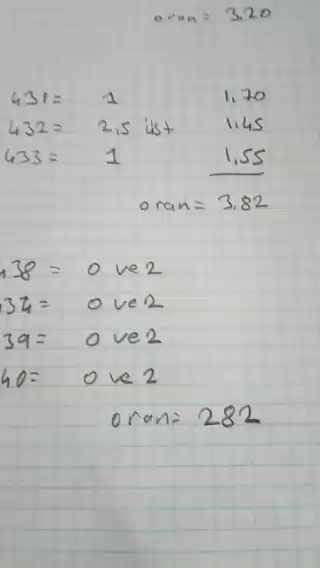 oran= 3.20
431= 1 1,70
432= 2,5 üst 1.45
433= 1 1,55
oran= 3.82
438 = 0 ve 2
0 ve 2
39= 0 ve 2
40= 0 ve 2
oran= 282